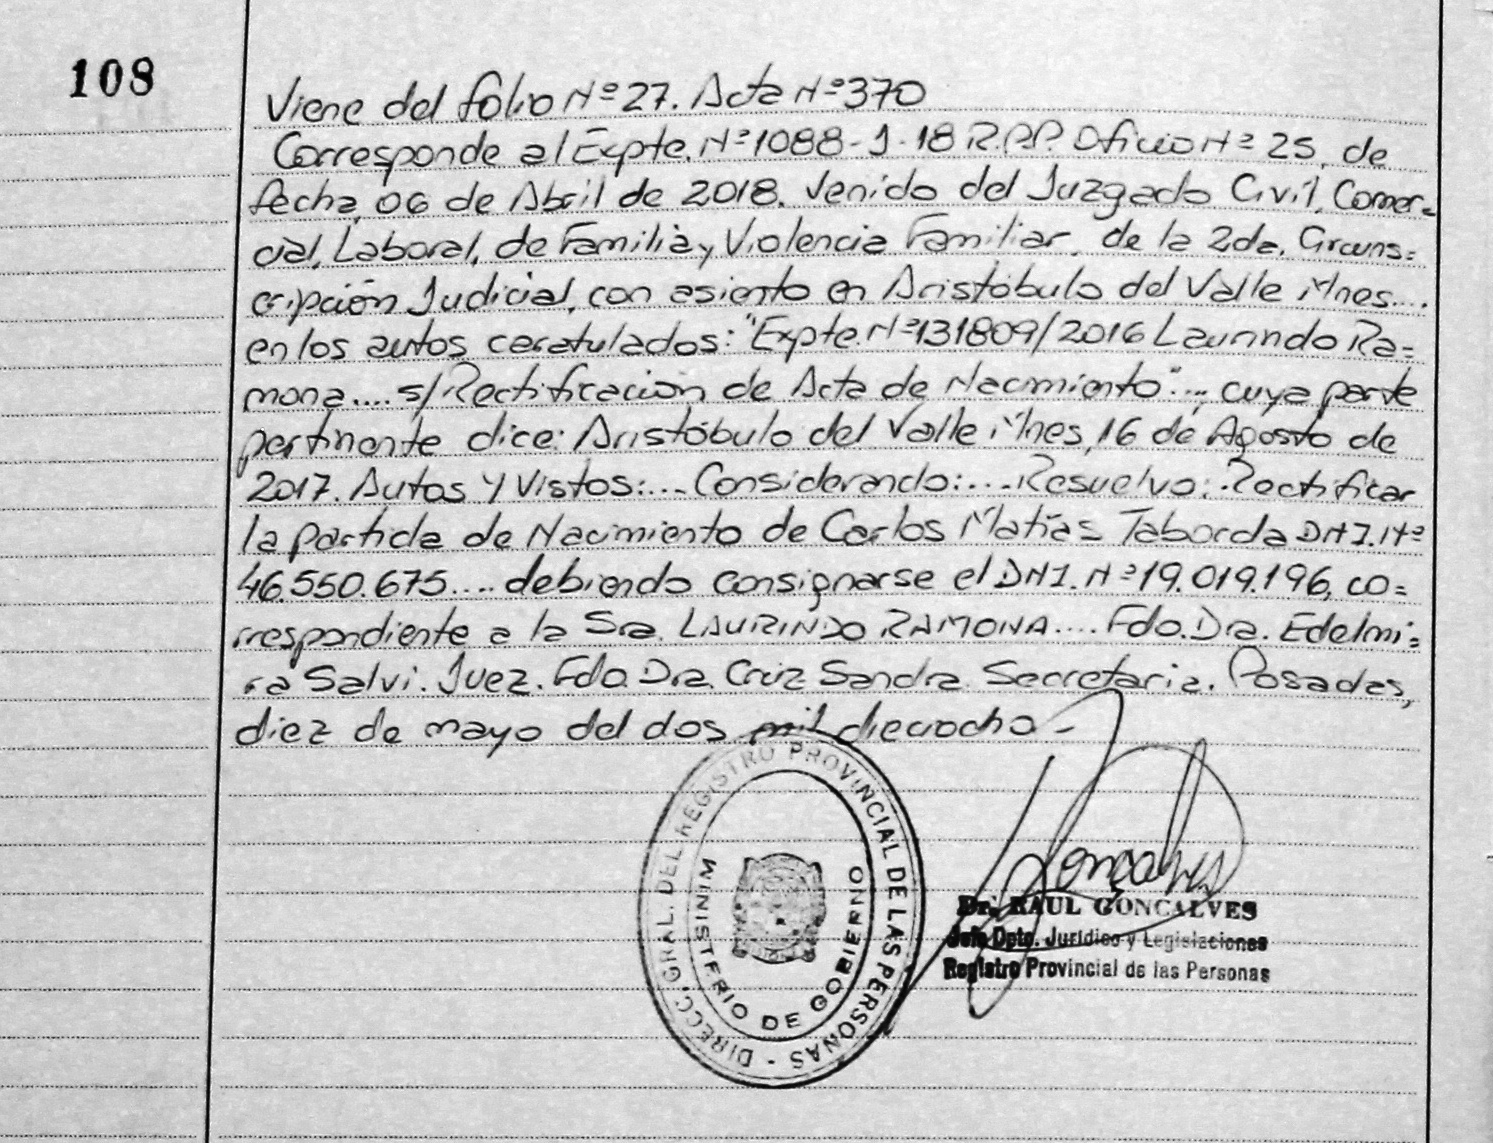 108
Viene del folio Nº 27. Acta Nº 370
Corresponde al Expte. Nº 1088-J-18 R.P.P. Oficio Nº 25, de
fecha 06 de Abril de 2018. Venido del Juzgado Civil, Comer=
cial, Laboral, de Familia y Violencia Familiar, de la 2da. Circuns=
cripción Judicial, con asiento en Aristóbulo del Valle Mnes....
en los autos caratulados: "Expte. Nº 131809/2016 Laurindo Ra=
mona.... s/Rectificación de Acta de Nacimiento"..., cuya parte
pertinente dice: Aristóbulo del Valle Mnes, 16 de Agosto de
2017. Autos y Vistos:.... Considerando:.... Resuelvo: Rectificar
la partida de Nacimiento de Carlos Matías Taborda DNI. Nº
46.550.675.... debiendo consignarse el DNI. Nº 19.019.196, co=
rrespondiente a la Sra. LAURINDO RAMONA.... Fdo. Dra. Edelmi=
ra Salvi. Juez. Fdo. Dra. Cruz Sandra. Secretaria. Posadas,
diez de mayo del dos mil dieciocho.-
DIRECC. GRAL. DEL REGISTRO PROVINCIAL DE LAS PERSONAS -
MINISTERIO DE GOBIERNO
Gonçalves
Dr. RAUL GONCALVES
Jefe Dpto. Jurídico y Legislaciones
Registro Provincial de las Personas